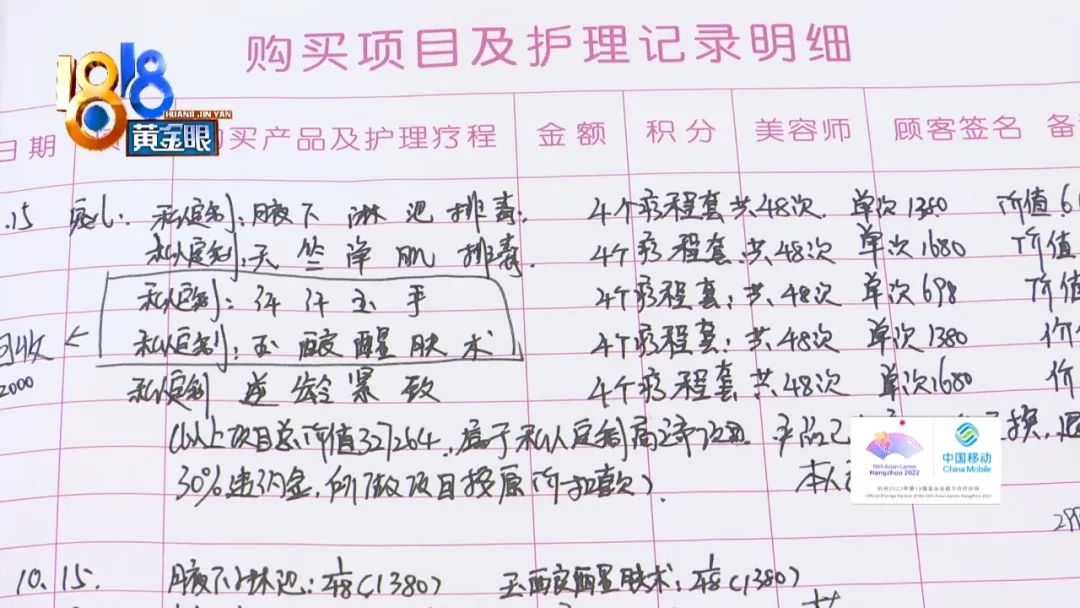 购买项目及护理记录明细
1818
HUANG JIN YAN
黄金眼
日期 购买产品及护理疗程 金额 积分 美容师 顾客签名 备
.15 私人定制:腋下淋巴排毒. 4个疗程套共48次. 单次1380 价值6
私人定制:天竺净肌排毒. 4个疗程套.共48次 单次1680 价值
私人定制:纤纤玉手 4个疗程套:共48次 单次698 价值
回收 ← 私人定制:玉酸醒肤术 4个疗程套:共48次 单次1380 价
2000
私人定制 逆龄紧致 4个疗程套共48次 单次1680 价
(以上项目总价值327264.属于私人定制 换,退
30%违约金,所做项目按原价扣款). 本人
299
19th Asian Games
Hangzhou 2022
中国移动
China Mobile
杭州2022年第19届亚运会官方合作伙伴
Official Prestige Partner of the 19th Asian Games Hangzhou 2022
10.15. 腋下淋巴:1/48(1380) 玉酸醒肤术:1/48(1380)